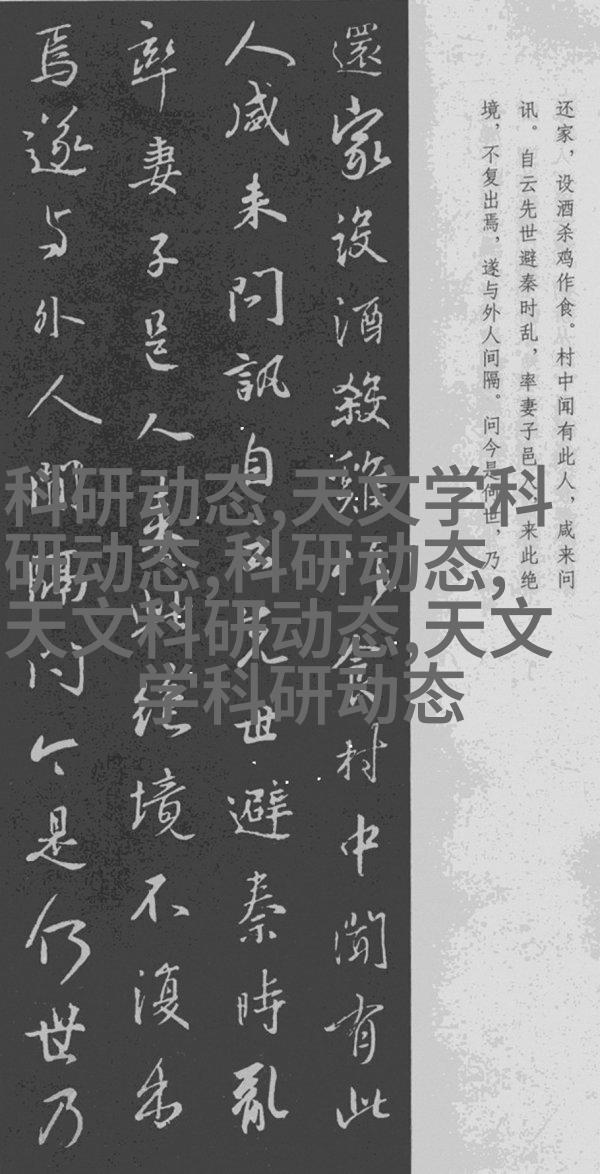 还家，设酒杀鸡作食。村中闻有此人，咸来问
讯。自云先世避秦时乱，率妻子邑人，来此绝
境，不复出焉，遂与外人间隔。问今是何世，乃
還家設酒殺雞作食村中聞有此
人咸来問訊自云先世避秦時亂
率妻子邑人来此絶境不復出
焉遂与外人間隔問今是何世乃
科研动态,天文学科
研动态,科研动态,
天文科研动态,天文
学科研动态